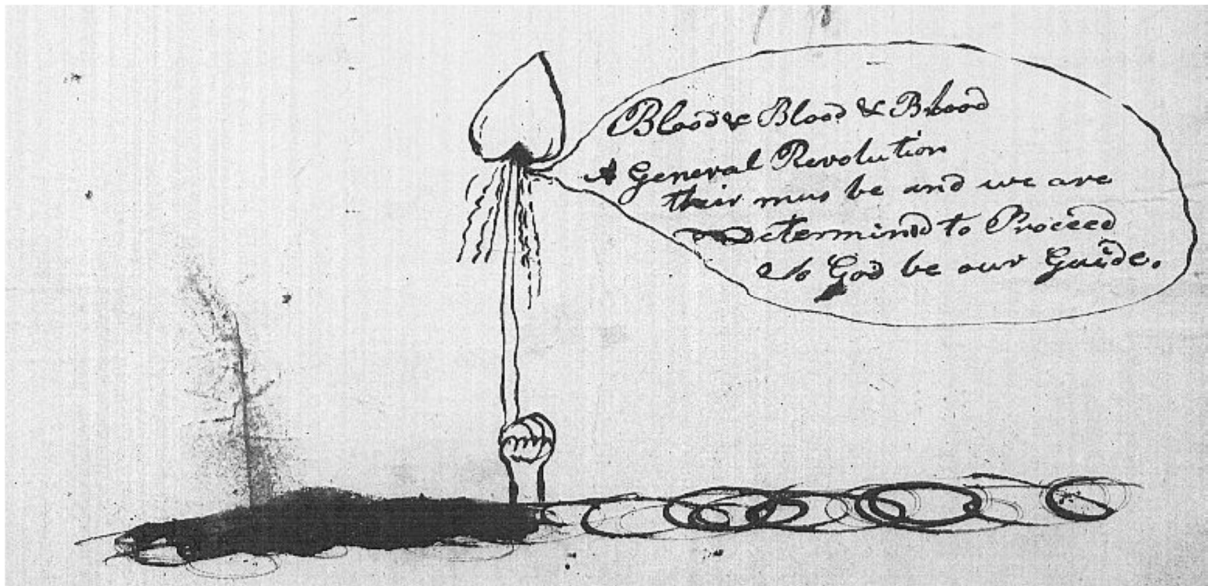 Blood & Blood & Blood
A General Revolution
their mus be and we are
Determin'd to Proceed
So God be our Guide.